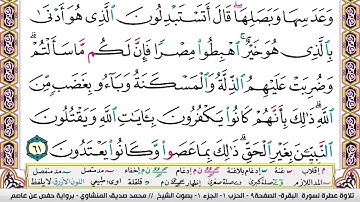 وَعَدَسِهَا وَبَصَلِهَا ۖ قَالَ أَتَسْتَبْدِلُونَ ٱلَّذِى هُوَ أَدْنَىٰ
بِٱلَّذِى هُوَ خَيْرٌ ۚ ٱهْبِطُوا۟ مِصْرًا فَإِنَّ لَكُم مَّا سَأَلْتُمْ ۗ
وَضُرِبَتْ عَلَيْهِمُ ٱلذِّلَّةُ وَٱلْمَسْكَنَةُ وَبَآءُو بِغَضَبٍ مِّنَ
ٱللَّهِ ۗ ذَٰلِكَ بِأَنَّهُمْ كَانُوا۟ يَكْفُرُونَ بِـَٔايَٰتِ ٱللَّهِ وَيَقْتُلُونَ
ٱلنَّبِيِّـۧنَ بِغَيْرِ ٱلْحَقِّ ۗ ذَٰلِكَ بِمَا عَصَوا۟ وَّكَانُوا۟ يَعْتَدُونَ ٦١
تلاوة عطرة لسورة البقرة - الصفحة ٩ - الحزب ١ - الجزء ١ - بصوت الشيخ // محمد صديق المنشاوي - برواية حفص عن عاصم